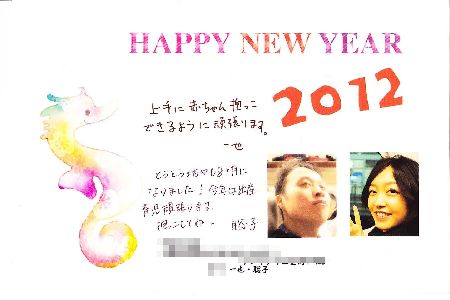 HAPPY NEW YEAR
2012
上手に赤ちゃん抱っこ
できるように頑張ります。
一也
になりました！今年は出産
育児頑張ります。
抱っこしてね〜 聡子
一也・聡子